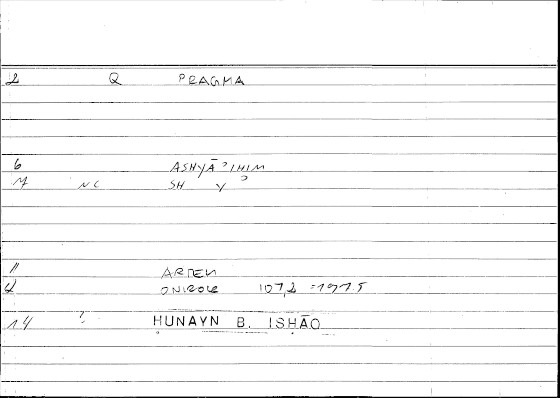 2 Q PRAGMA
6 ASHYĀʾIHIM
M NC SH Y ʾ
11 ARTEN
4 ONIROC 107,2 =197.5
14 ? ḤUNAYN B. ISḤĀQ